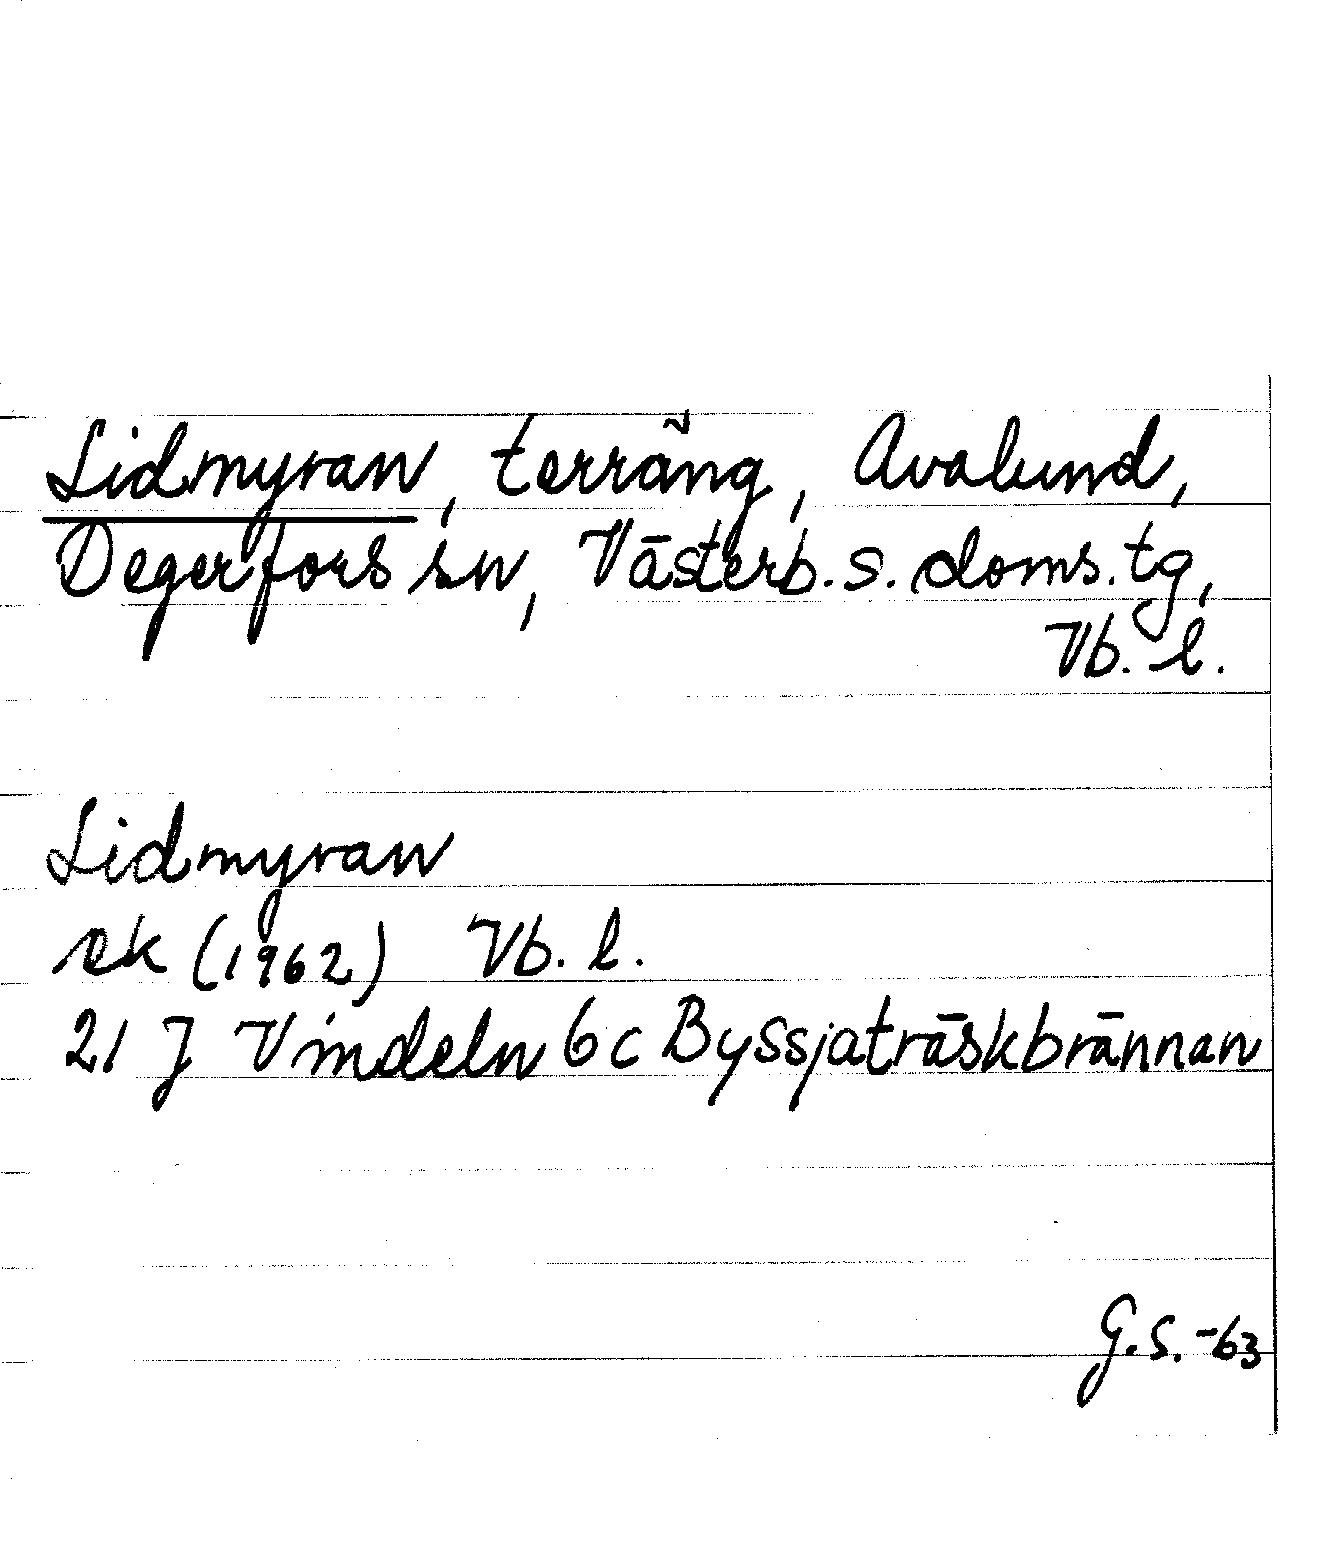 Lidmyran, terräng, Avalund,
Degerfors sn, Västerb. s. doms. tg,
Vb. l.
Lidmyran
ek (1962) Vb. l.
21 J Vindeln 6 c Byssjaträskbrännan
G.S. -63